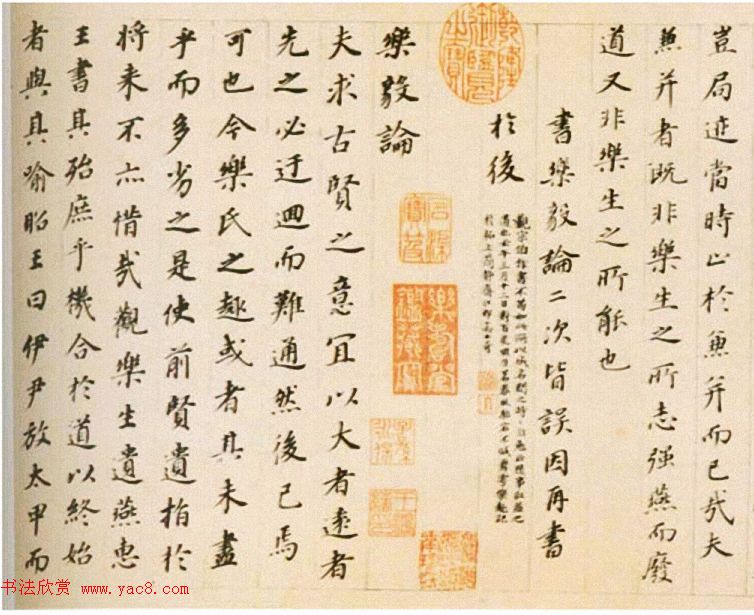 豈局迹當時止於兼并而已哉夫
兼并者既非樂生之所志強燕而廢
道又非樂生之所能也
書樂毅論二次皆誤因再書
於後
觀宗伯作書不苟如此所以成名
乾隆御覽之寶
石渠寶笈
樂壽堂鑑藏寶
樂毅論
夫求古賢之意宜以大者遠者
先之必迂迴而難通然後已焉
可也今樂氏之趣或者其未盡
乎而多劣之是使前賢遺指於
将来不亦惜哉觀樂生遺燕惠
王書其殆庶乎機合於道以終始
者與其喻昭王曰伊尹放太甲而
书法欣赏 www.yac8.com